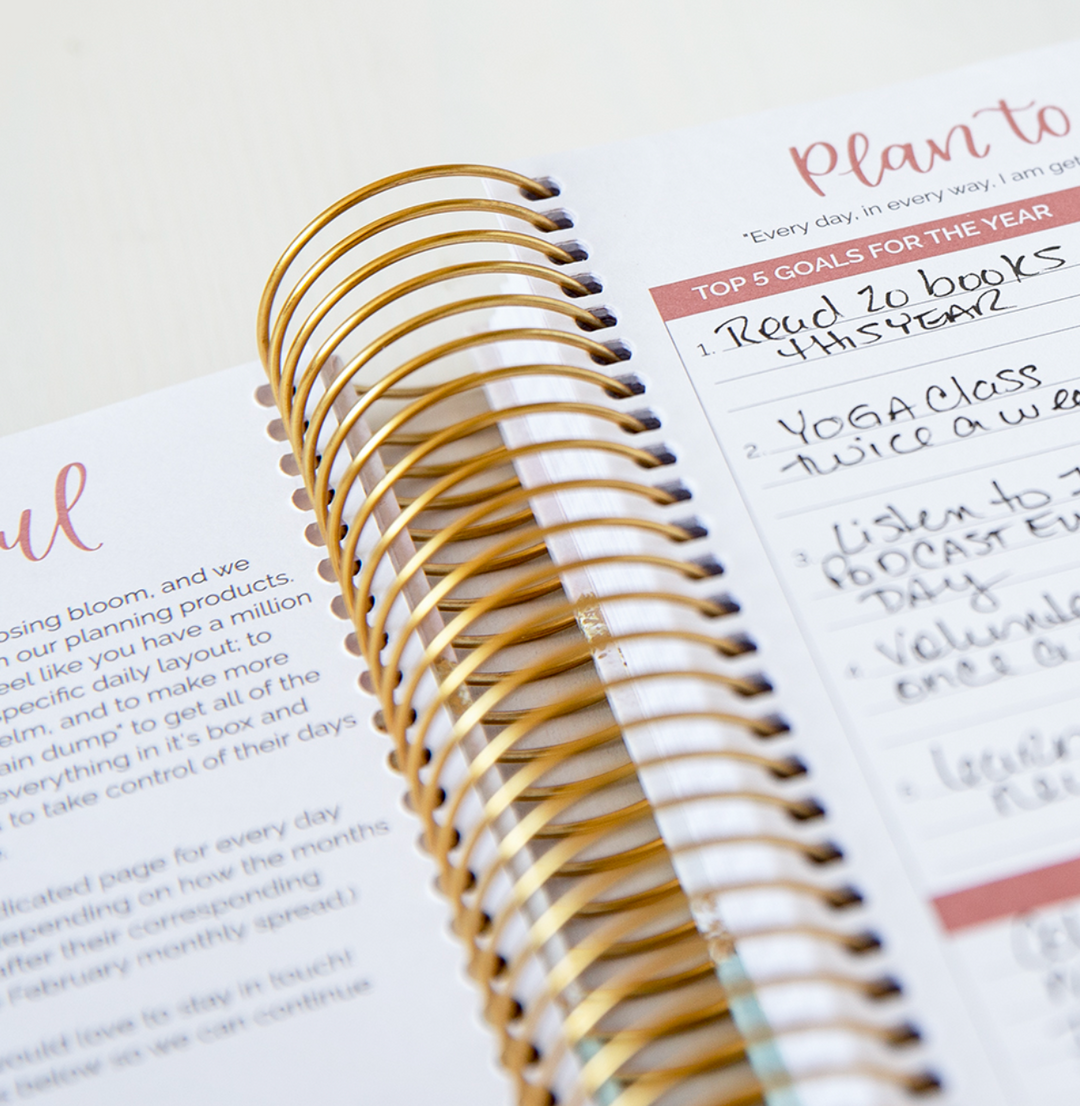 osing bloom, and we
our planning products.
eel like you have a million
specific daily layout; to
elm, and to make more
ain dump" to get all of the
everything in it's box and
to take control of their days
dicated page for every day
depending on how the months
after their corresponding
February monthly spread.)
would love to stay in touch!
below so we can continue
Plan to
"Every day, in every way, I am get
TOP 5 GOALS FOR THE YEAR
1. Read 20 books
this YEAR
2. YOGA Class
twice a wee
3. Listen to
PODCAST EV
DAY
Volunte
once a